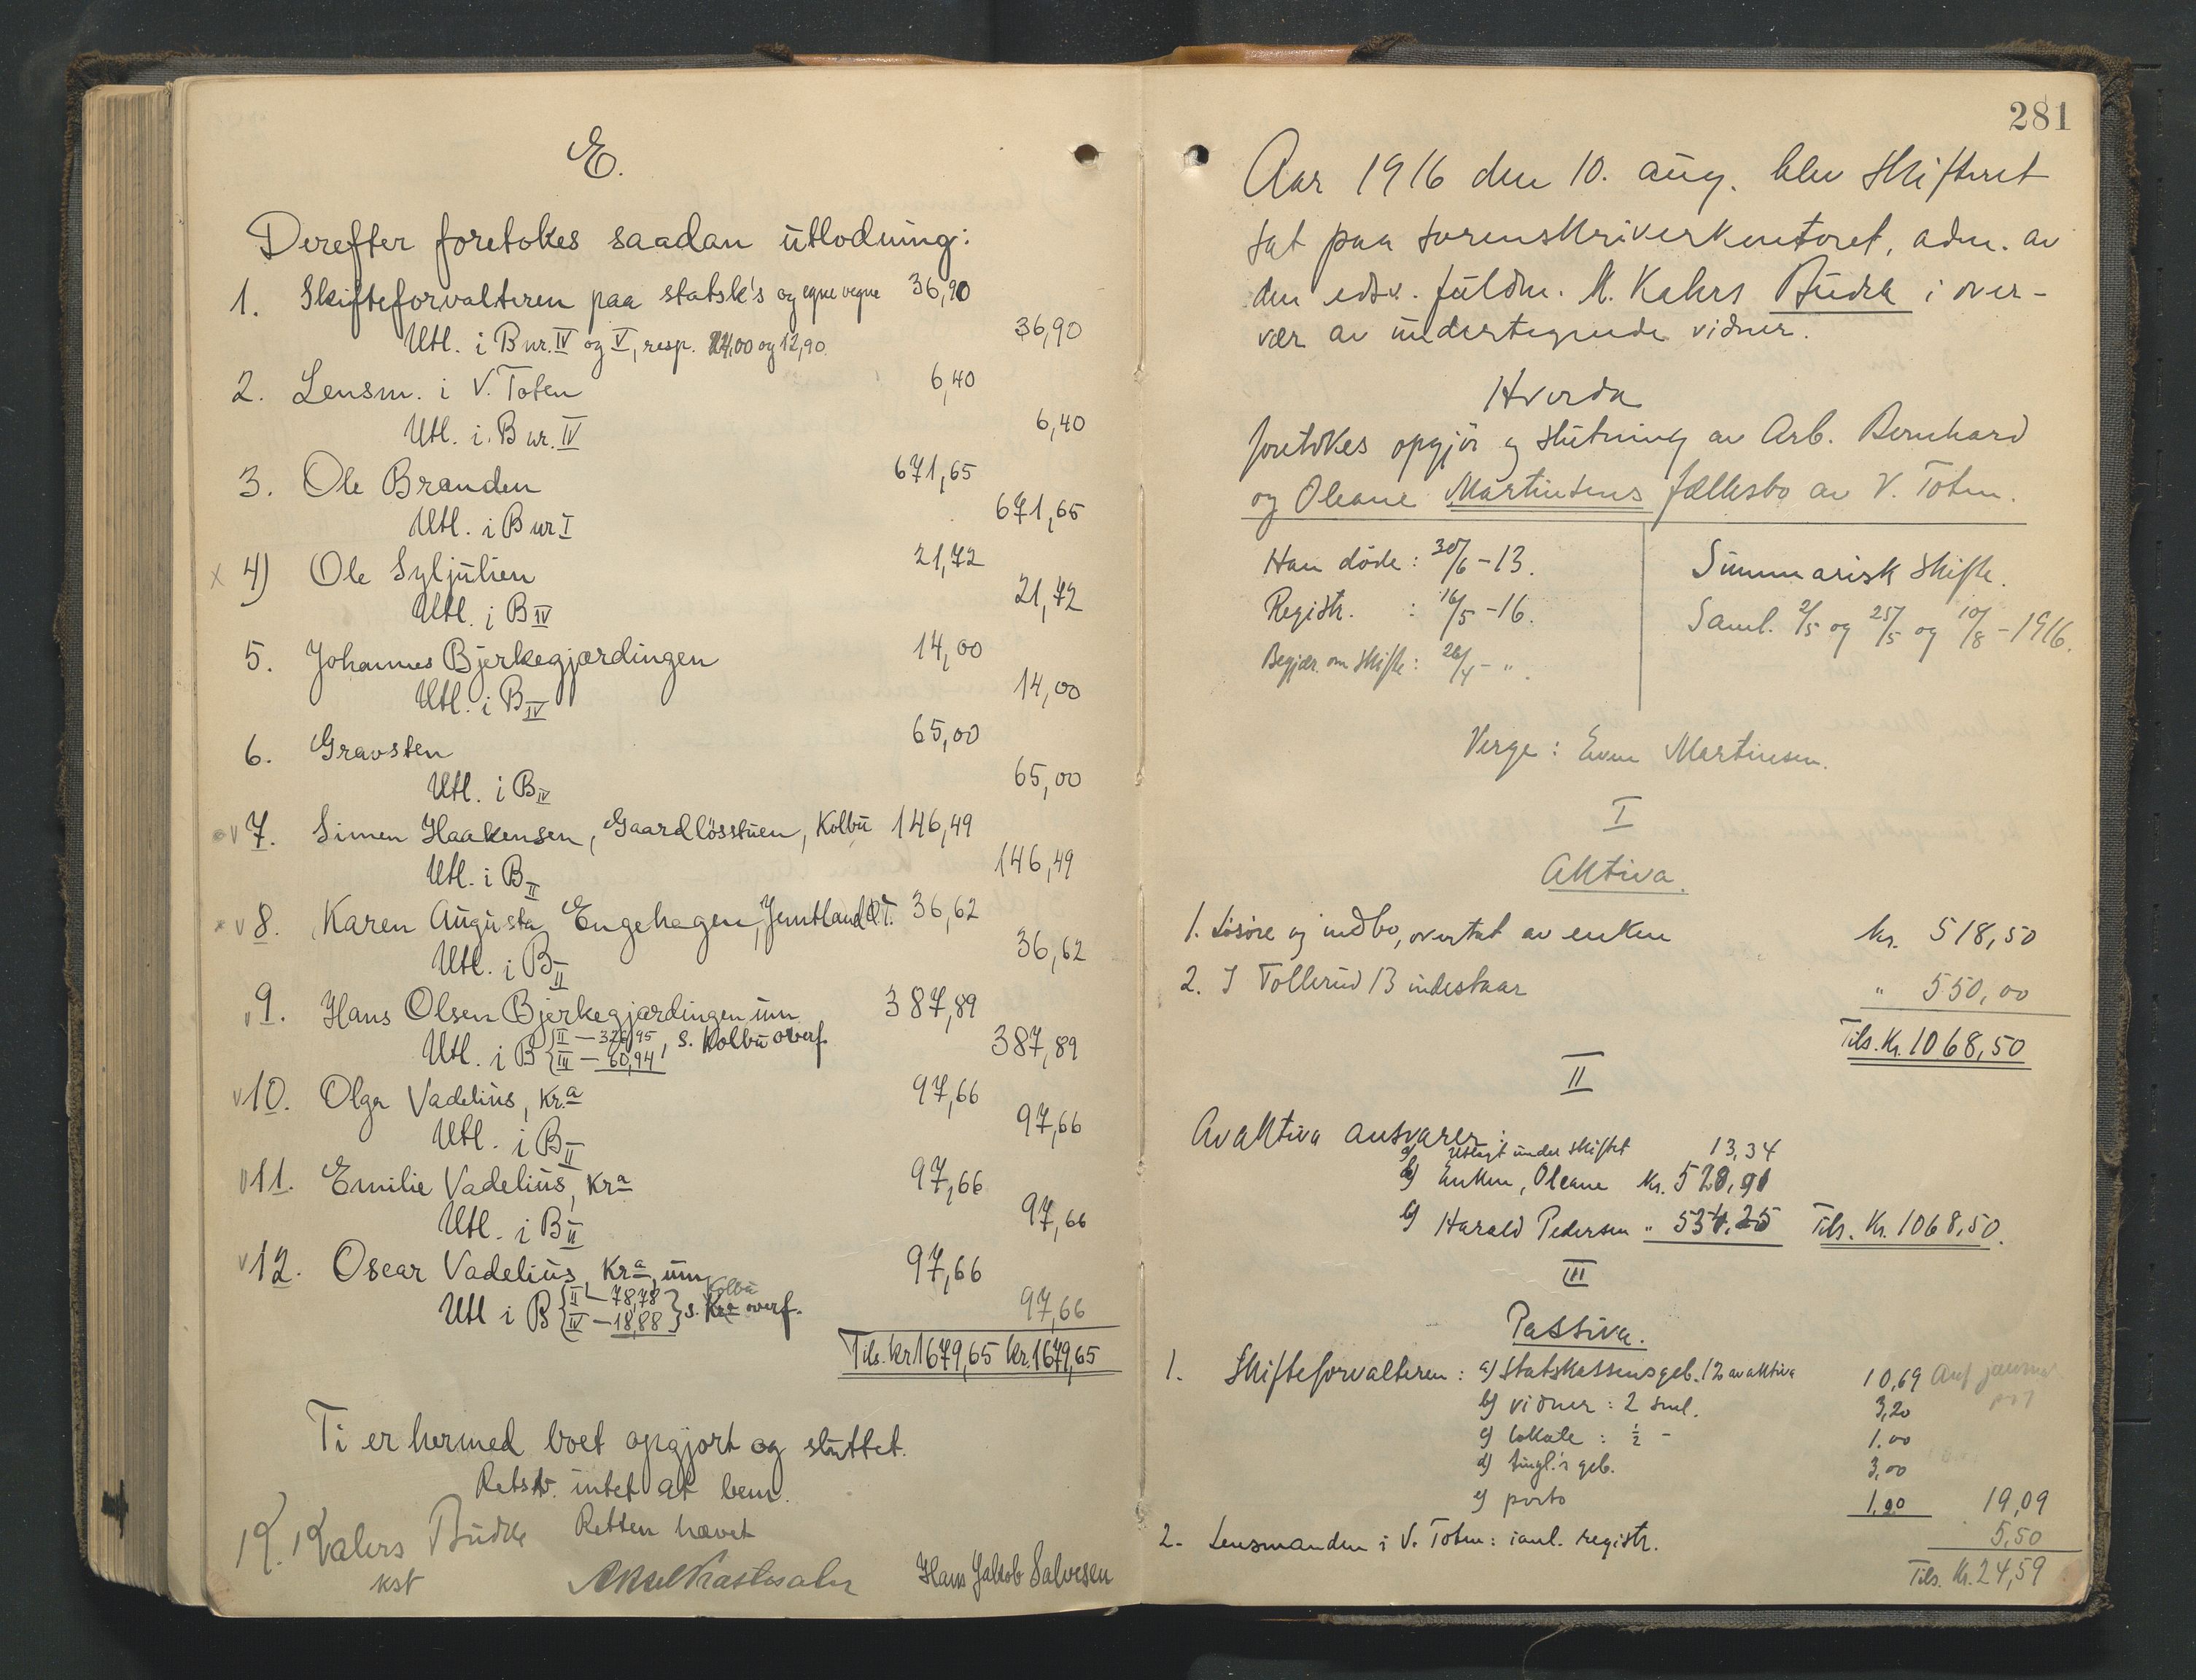 E.
Derefter foretokes saadan utlodning:
1. Skifteforvalteren paa statsk's og egne vegne 36,90
Utl. i B nr. IV og V, resp. 24,00 og 12,90 36,90
2. Lensm. i V. Toten 6,40
Utl. i B nr. IV 6,40
3. Ole Branden 671,65
Utl. i B nr I 671,65
x 4) Ole Syljulien 21,72
Utl. i B IV 21,72
5. Johannes Bjerkegjærdingen 14,00
Utl. i B IV 14,00
6. Gravsten 65,00
Utl. i B IV 65,00
v 7. Simen Haakensen, Gaardlösstuen, Kolbu 146,49
Utl. i B II 146,49
x v 8. Karen Augusta Engehagen, Jemtland Ø.T. 36,62
Utl. i B II 36,62
v 9. Hans Olsen Bjerkegjærdingen um 387,89
Utl. i B { II — 326,95, III — 60,94 s. Kolbu overf. 387,89
v 10. Olga Vadelius, Kr.a 97,66
Utl. i B II 97,66
v 11. Emilie Vadelius, Kra 97,66
Utl. i B II 97,66
v 12. Oscar Vadelius, Kra, um 97,66
Utl i B { II — 78,78 IV — 18,88 } s. Kra Kolbu overf. 97,66
Tils. kr 1679,65 kr. 1679,65
Ti er hermed boet opgjort og sluttet.
Retsv. intet at bem.
Retten hævet
K. Kahrs Budde
kst
Hans Jakob Salvesen
281
Aar 1916 den 10. aug. blev skifteret
sat paa sorenskriverkontoret, adm. av
den edsv. fuldm. K. Kahrs Budde i over-
vær av undertegnede vidner.
Hvorda
foretokes opgjör og slutning av Arb. Bernhard
og Oleane Martinsens fællesbo av V. Toten.
Han döde: 30/6 - 13.
Registr. : 16/5 - 16.
Begjær. om skifte: 26/4 - "
Summarisk skifte.
Saml. 2/5 og 25/5 og 10/8 - 1916.
Verge: Even Martinsen.
I
Aktiva.
1. Lösöre og indbo, overtat av enken kr. 518,50
2. I Tollerud B indestaar " 550,00
Tils. Kr. 1068,50
II
Av aktiva ansvarer:
a) Utlagt under skiftet 13,34
b) Enken, Oleane kr. 520,91
c) Harald Pedersen " 534,25 Tils. Kr. 1068,50.
III
Passiva.
1. Skifteforvalteren: a) Statskassens geb. 1% av aktiva 10,69
b) vidner: 2 saml. 3,20
c) lokale: ½ - 1.00
d) tingl.'s geb. 3,00
e) porto 1.20 19,09
2. Lensmanden i V. Toten: ianl. registr. 5,50
Tils. kr. 24,59